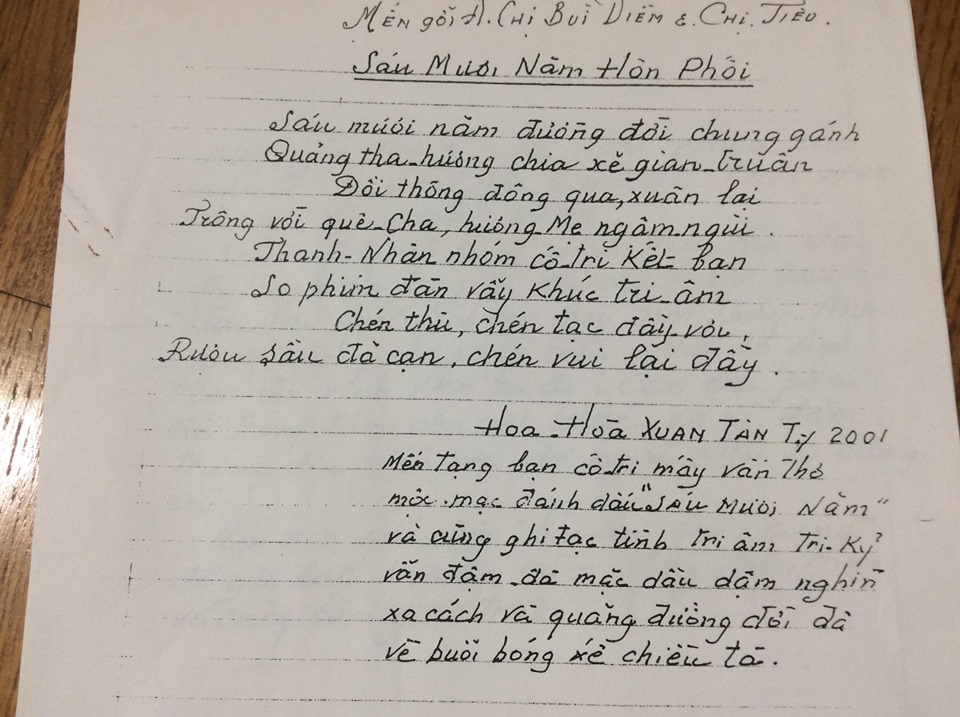 Mến gởi A. Chị Bùi Diễm & Chị Tiều.
Sáu Mươi Năm Hôn Phối
Sáu mươi năm đường đời chung gánh
Quảng tha-hương chia xẻ gian-truân
Đồi thông đông qua, xuân lại
Trông vời quê-Cha, hướng Mẹ ngậm-ngùi.
Thanh-Nhàn nhóm cố-tri kết-bạn
So phím đàn vẫy khúc tri-âm
Chén thù, chén tạc đầy vơi,
Rượu sầu đã cạn, chén vui lại đầy.
Hoa-Hoà XUÂN TÂN TỴ 2001
Mến tặng bạn cố-tri mấy vần thơ
mộc-mạc đánh dấu "SÁU MƯƠI NĂM"
và cũng ghi tạc tình tri âm tri-kỷ
vẫn đậm-đà mặc dầu dặm nghìn
xa cách và quãng đường đời đã
về buổi bóng xế chiều tà.